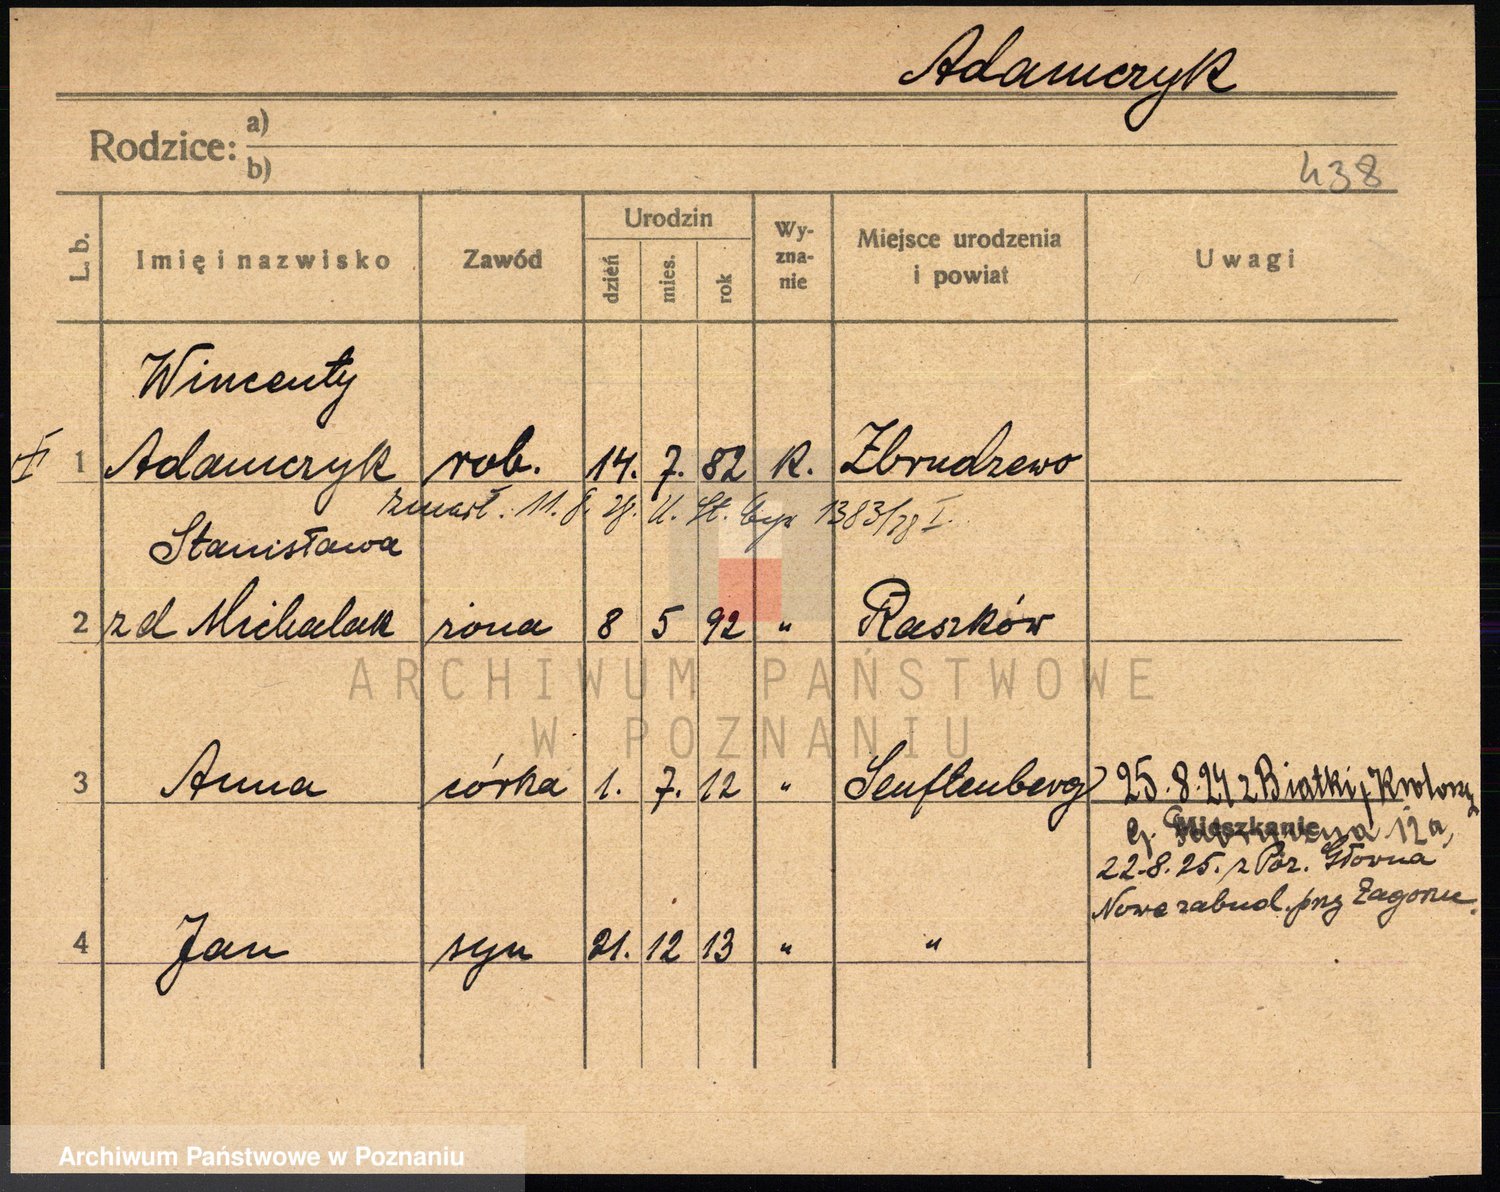 Adamczyk
Rodzice: a)
b)
438
L. b. Imię i nazwisko Zawód Urodzin dzień mies. rok Wy-zna-nie Miejsce urodzenia i powiat Uwagi
Wincenty
1 Adamczyk rob. 14. 7. 82 K. Zbrudzewo
zmarł. 11. 8. 28. U. St. 1383/28 I.
Stanisława
2 zd Michalak żona 8 5 92 " Raszków
3 Anna córka 1. 7. 12 " Senftenberg 25.8.24 z Białki,
Mieszkanie 12a,
22.8.25. z Poz. Główna
Nowe zabud. przy Zagonie.
4 Jan syn 21. 12 13 " "
ARCHIWUM PAŃSTWOWE
W POZNANIU
Archiwum Państwowe w Poznaniu